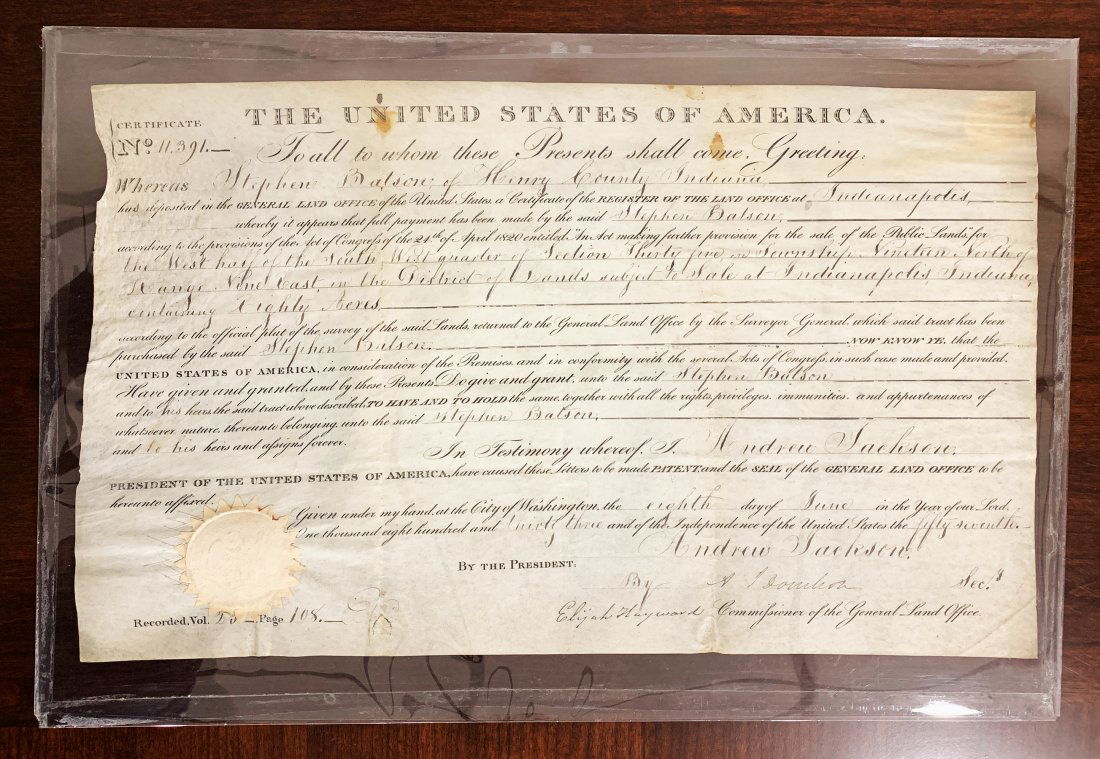 THE UNITED STATES OF AMERICA.
CERTIFICATE
No. 11.391.
To all to whom these Presents shall come, Greeting:
WHEREAS Stephen Batson, of Henry County Indiana
has deposited in the GENERAL LAND OFFICE of the United States, a Certificate of the REGISTER OF THE LAND OFFICE at Indianapolis,
whereby it appears that full payment has been made by the said Stephen Batson,
according to the provisions of the Act of Congress of the 24th of April 1820 entitled "An Act making further provision for the sale of the Public Lands," for
the West half of the South West quarter of Section Thirty five in Township Nineteen North of
Range Nine East, in the District of Lands subject to Sale at Indianapolis, Indiana,
containing Eighty Acres
according to the official plat of the survey of the said Lands, returned to the General Land Office by the Surveyor General, which said tract has been
purchased by the said Stephen Batson. NOW KNOW YE, that the
UNITED STATES OF AMERICA, in consideration of the Premises, and in conformity with the several Acts of Congress, in such case made and provided,
Have given and granted, and by these Presents Do give and grant, unto the said Stephen Batson
and to his heirs, the said tract above described, TO HAVE AND TO HOLD the same, together with all the rights, privileges, immunities, and appurtenances of
whatsoever nature, thereunto belonging, unto the said Stephen Batson,
and to his heirs and assigns forever.
In Testimony whereof, I, Andrew Jackson,
PRESIDENT OF THE UNITED STATES OF AMERICA, have caused these Letters to be made PATENT, and the SEAL of the GENERAL LAND OFFICE to be
hereunto affixed.
Given under my hand, at the City of Washington, the eighth day of June in the Year of our Lord,
one thousand eight hundred and thirty three and of the Independence of the United States the fifty seventh.
Andrew Jackson.
BY THE PRESIDENT:
By A J Donelson Sec.y
Elijah Hayward Commissioner of the General Land Office.
Recorded, Vol. Page 108.